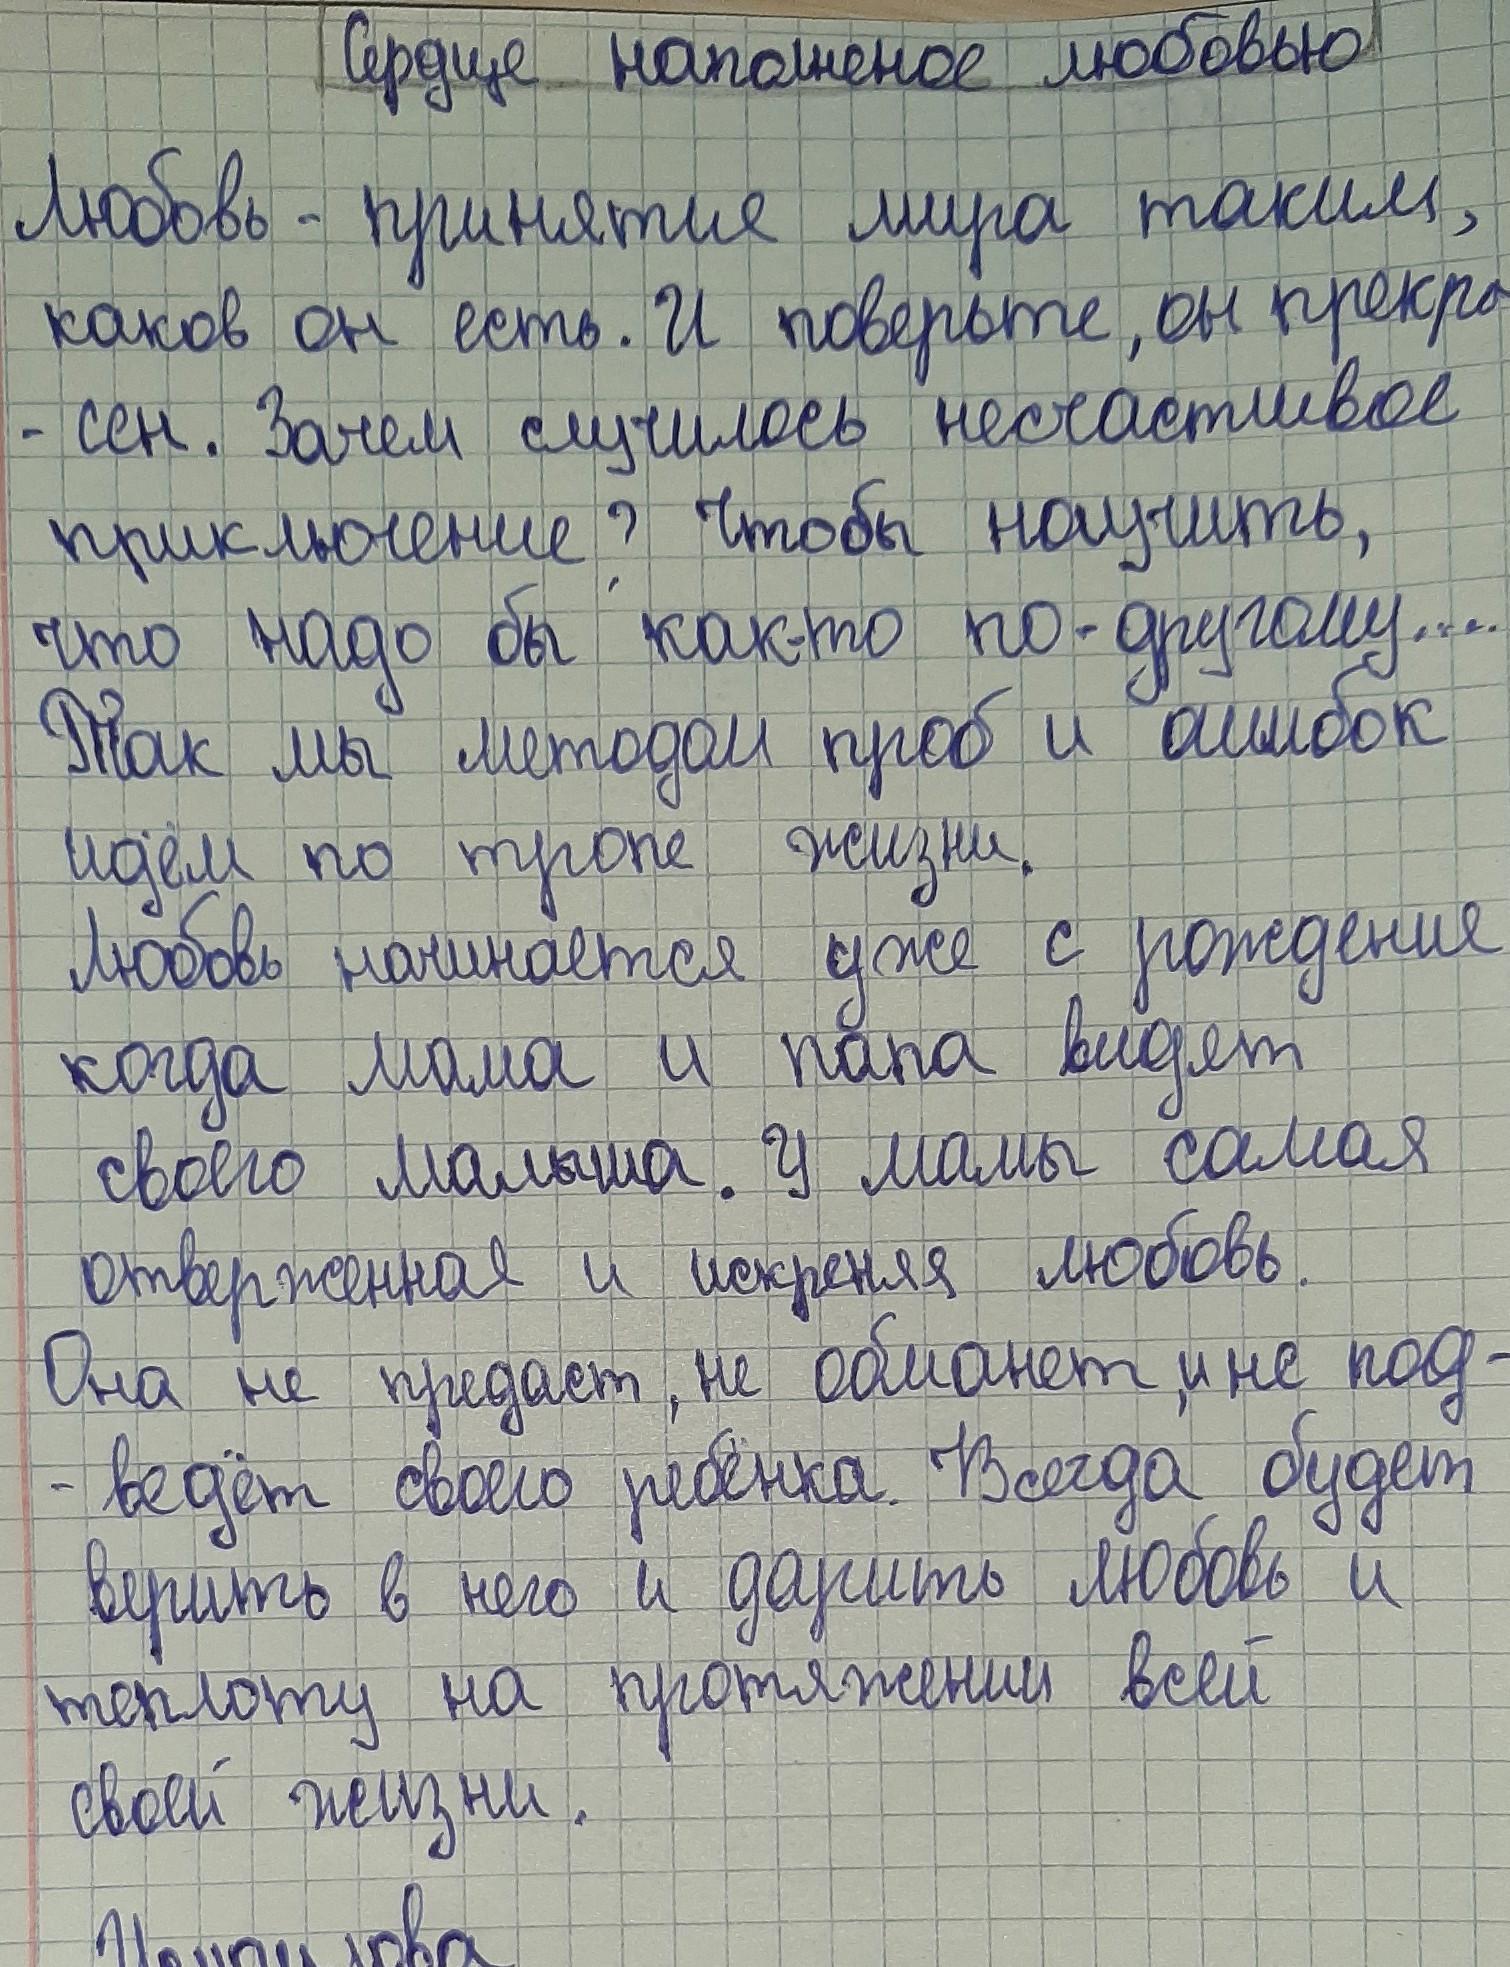 Сердце наполненое любовью
Любовь - принятие мира таким,
каков он есть. И поверьте, он прекра
- сен. Зачем случилось несчастливое
приключение? Чтобы научить,
что надо бы как-то по-другому....
Так мы методом проб и ошибок
идём по тропе жизни.
Любовь начинается уже с рождения
когда мама и папа видят
своего малыша. У мамы самая
отверженная и искреняя любовь.
Она не предаст, не обманет, и не под-
- ведёт своего ребёнка. Всегда будет
верить в него и дарить любовь и
теплоту на протяжении всей
своей жизни.